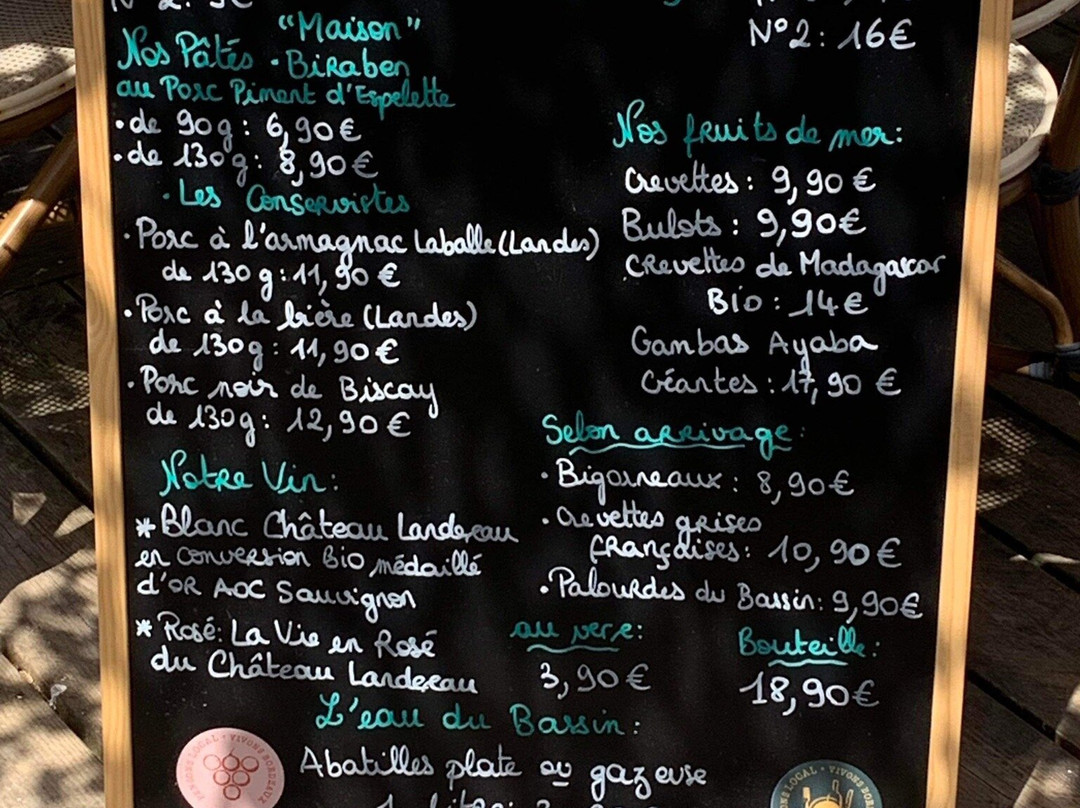 N° 2: 9€
"Maison"
Nos Pâtés • Biraben
au Porc Piment d'Espelette
• de 90g : 6,90 €
• de 130g : 8,90 €
• Les Conservistes
• Porc à l'armagnac Laballe (Landes)
de 130 g : 11,90 €
• Porc à la bière (Landes)
de 130g : 11,90 €
• Porc noir de Biscay
de 130g : 12,90 €
Notre Vin :
* Blanc Château Landereau
en conversion Bio médaillé
d'OR AOC Sauvignon
* Rosé : La Vie en Rosé
du Château Landereau
N°2 : 16€
Nos fruits de mer :
Crevettes : 9,90 €
Bulots : 9,90€
Crevettes de Madagascar
Bio : 14€
Gambas Ayaba
Géantes : 17,90 €
Selon arrivage :
• Bigorneaux : 8,90€
• Crevettes grises
françaises : 10,90 €
• Palourdes du Bassin : 9,90€
au vere :
3,90 €
Bouteille :
18,90€
L'eau du Bassin :
Abatilles plate ou gazeuse
LOCAL • VIVONS BORDEAUX
LOCAL • VIVONS